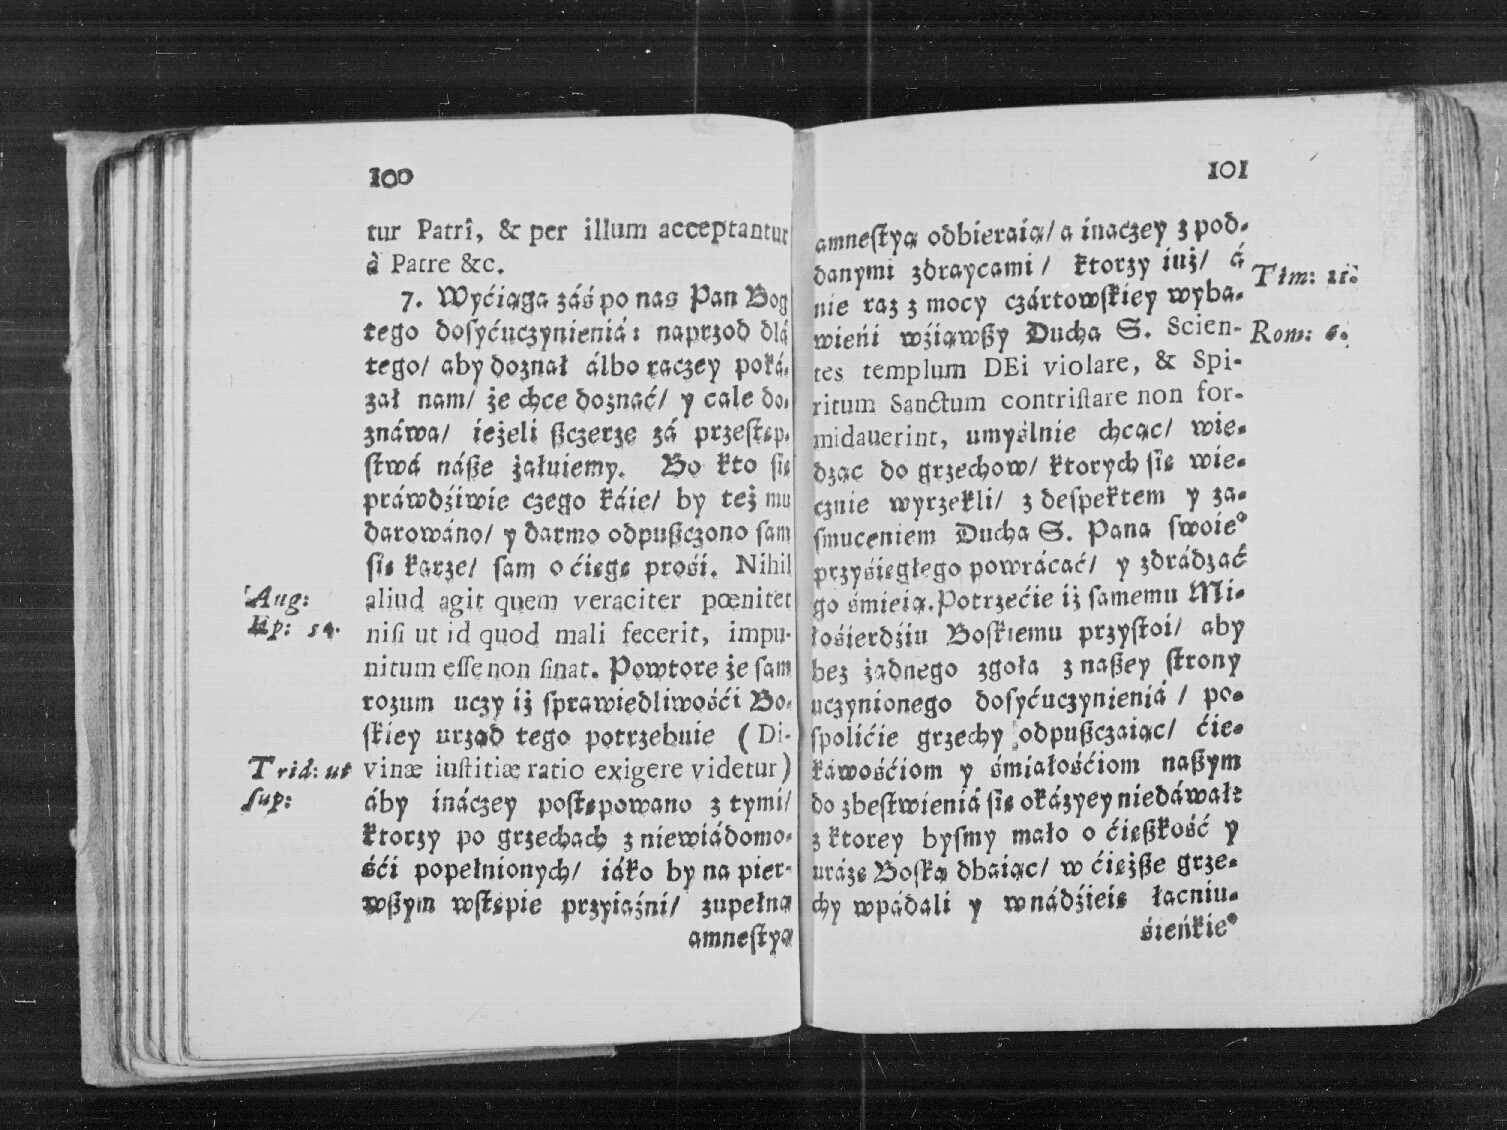 100
tur Patrî, & per illum acceptantur
à Patre &c.
7. Wyćiąga záś po nas Pan Bog
tego dosyćuczynieniá: naprzod dlá
tego/ aby doznał álbo raczey poká-
zał nam/ że chce doznáć/ y cale do-
znáwa/ ieżeli ßczerze zá przestęp-
stwá náße żałuiemy. Bo kto się
práwdźiwie czego káie/ by też mu
darowáno/ y darmo odpußczono sam
się karze/ sam o ćięgę prośi. Nihil
Aug:
aliud agit quem veraciter pœnitet
Ep: 54.
nisi ut id quod mali fecerit, impu-
nitum esse non sinat. Powtore że sam
rozum uczy iż sprawiedliwośći Bo-
skiey urząd tego potrzebuie (Di-
Trid: ut
vinæ iustitiæ ratio exigere videtur)
sup:
áby ináczey postępowano z tymi/
ktorzy po grzechach z niewiádomo-
śći popełnionych/ iáko by na pier-
wßym wstępie przyiaźni/ zupełną
amnestyą
101
amnestyą odbieraią/ a inaczey z pod-
danymi zdraycami/ ktorzy iuż/ á
Tim: 2.
nie raz z mocy czártowskiey wyba-
wieńi wźiąwßy Ducha S. Scien-
Rom: 6.
tes templum DEi violare, & Spi-
ritum Sanctum contristare non for-
midauerint, umyślnie chcąc/ wie-
dząc do grzechow/ ktorych się wie-
cznie wyrzekli/ z despektem y za-
smuceniem Ducha S. Pana swoie°
przyśięgłego powrácáć/ y zdrádzáć
go śmieią. Potrzećie iż samemu Mi-
łośierdźiu Boskiemu przystoi/ aby
bez żadnego zgoła z naßey strony
uczynionego dosyćuczynieniá/ po-
spolićie grzechy odpußczaiąc/ ćie-
káwośćiom y śmiałośćiom naßym
do zbestwieniá się okázyey niedáwáł:
z ktorey bysmy mało o ćięßkość y
urázę Boską dbaiąc/ w ćięjße grze-
chy wpádali y w nádźieię łacniu-
śieńkie°